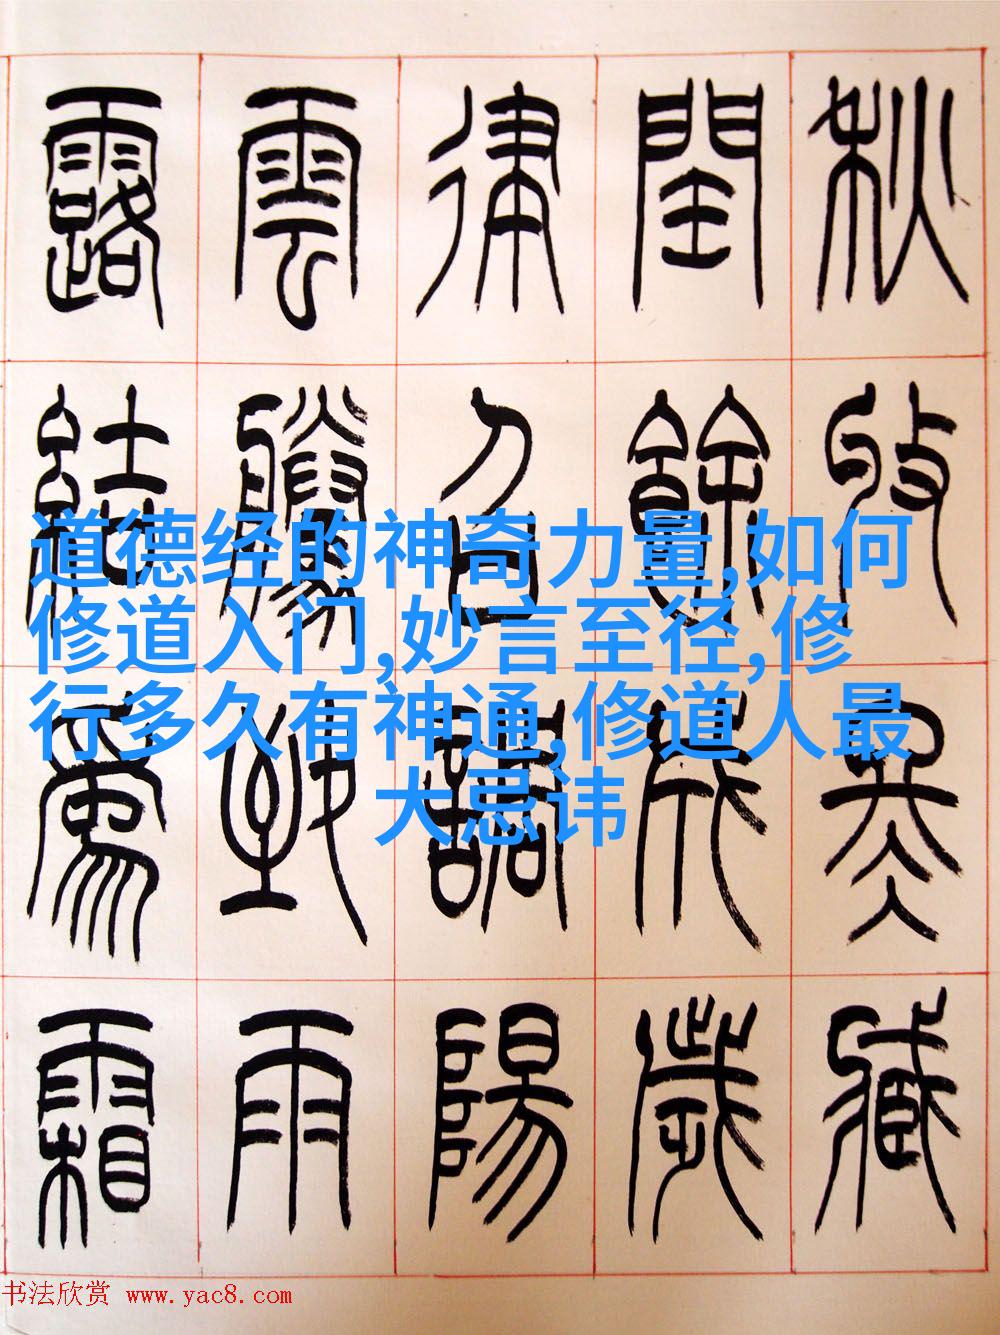 秋收冬藏
閏餘成歲
律召調陽
雲騰致雨
露結爲霜
道德经的神奇力量,如何
修道入门,妙言至径,修
行多久有神通,修道人最
大忌讳
书法欣赏 www.yac8.com